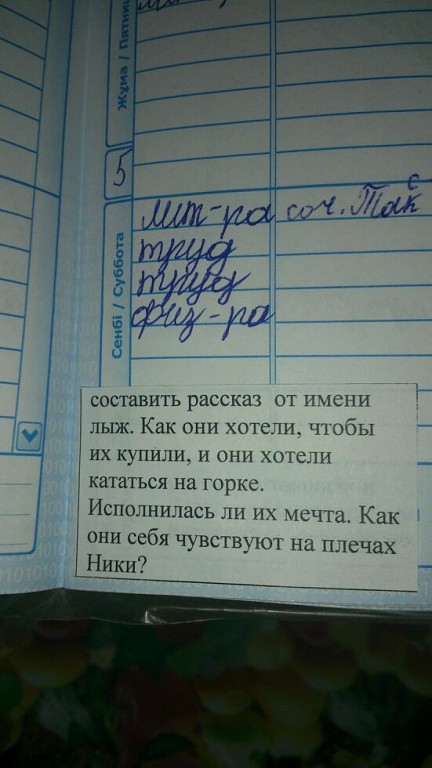 Жұма / Пятниц
5
Сенбі / Суббота
лит-ра соч. Так с
труд
труд
физ-ра
составить рассказ от имени
лыж. Как они хотели, чтобы
их купили, и они хотели
кататься на горке.
Исполнилась ли их мечта. Как
они себя чувствуют на плечах
Ники?